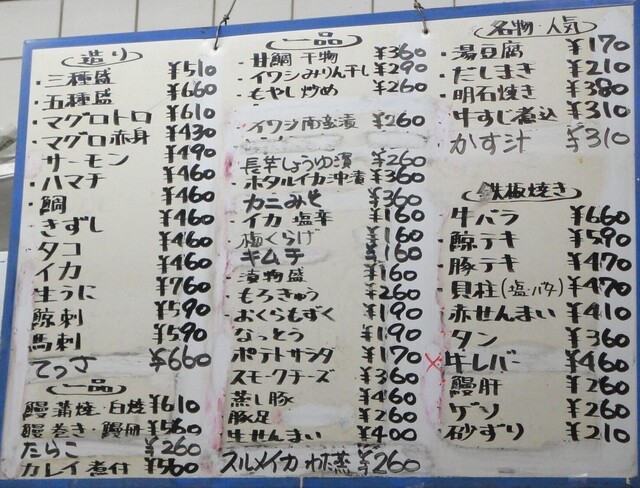 造り
・三種盛 ¥510
・五種盛 ¥660
・マグロトロ ¥610
・マグロ赤身 ¥430
サーモン ¥490
・ハマチ ¥460
・鯛 ¥460
・きずし ¥460
タコ ¥460
・イカ ¥460
生うに ¥760
鯨刺 ¥590
馬刺 ¥590
てっさ ¥660
一品
鰻蒲焼・白焼 ¥610
鰻巻き・鰻 ¥560
たらこ ¥260
カレイ煮付 ¥560
一品
・甘鯛 干物 ¥360
・イワシみりん干し ¥290
・もやし炒め ¥260
・イワシ南蛮漬 ¥260
長芋しょうゆ漬 ¥260
・ホタルイカ沖漬 ¥360
カニみそ ¥360
・イカ 塩辛 ¥160
梅くらげ ¥160
・キムチ ¥160
漬物盛 ¥160
・もろきゅう ¥260
・おくらもずく ¥190
なっとう ¥190
・ポテトサラダ ¥170
スモークチーズ ¥360
蒸し豚 ¥460
豚足 ¥260
・生せんまい ¥400
スルメイカ わた蒸 ¥260
名物・人気
・湯豆腐 ¥170
・だしまき ¥210
・明石焼き ¥380
・牛すじ煮込 ¥310
かす汁 ¥310
鉄板焼き
・牛バラ ¥660
・鯨テキ ¥590
・豚テキ ¥470
・貝柱(塩・バタ) ¥470
・赤せんまい ¥410
・タン ¥360
×牛レバー ¥460
・鰻肝 ¥260
・ゲソ ¥260
・砂ずり ¥210